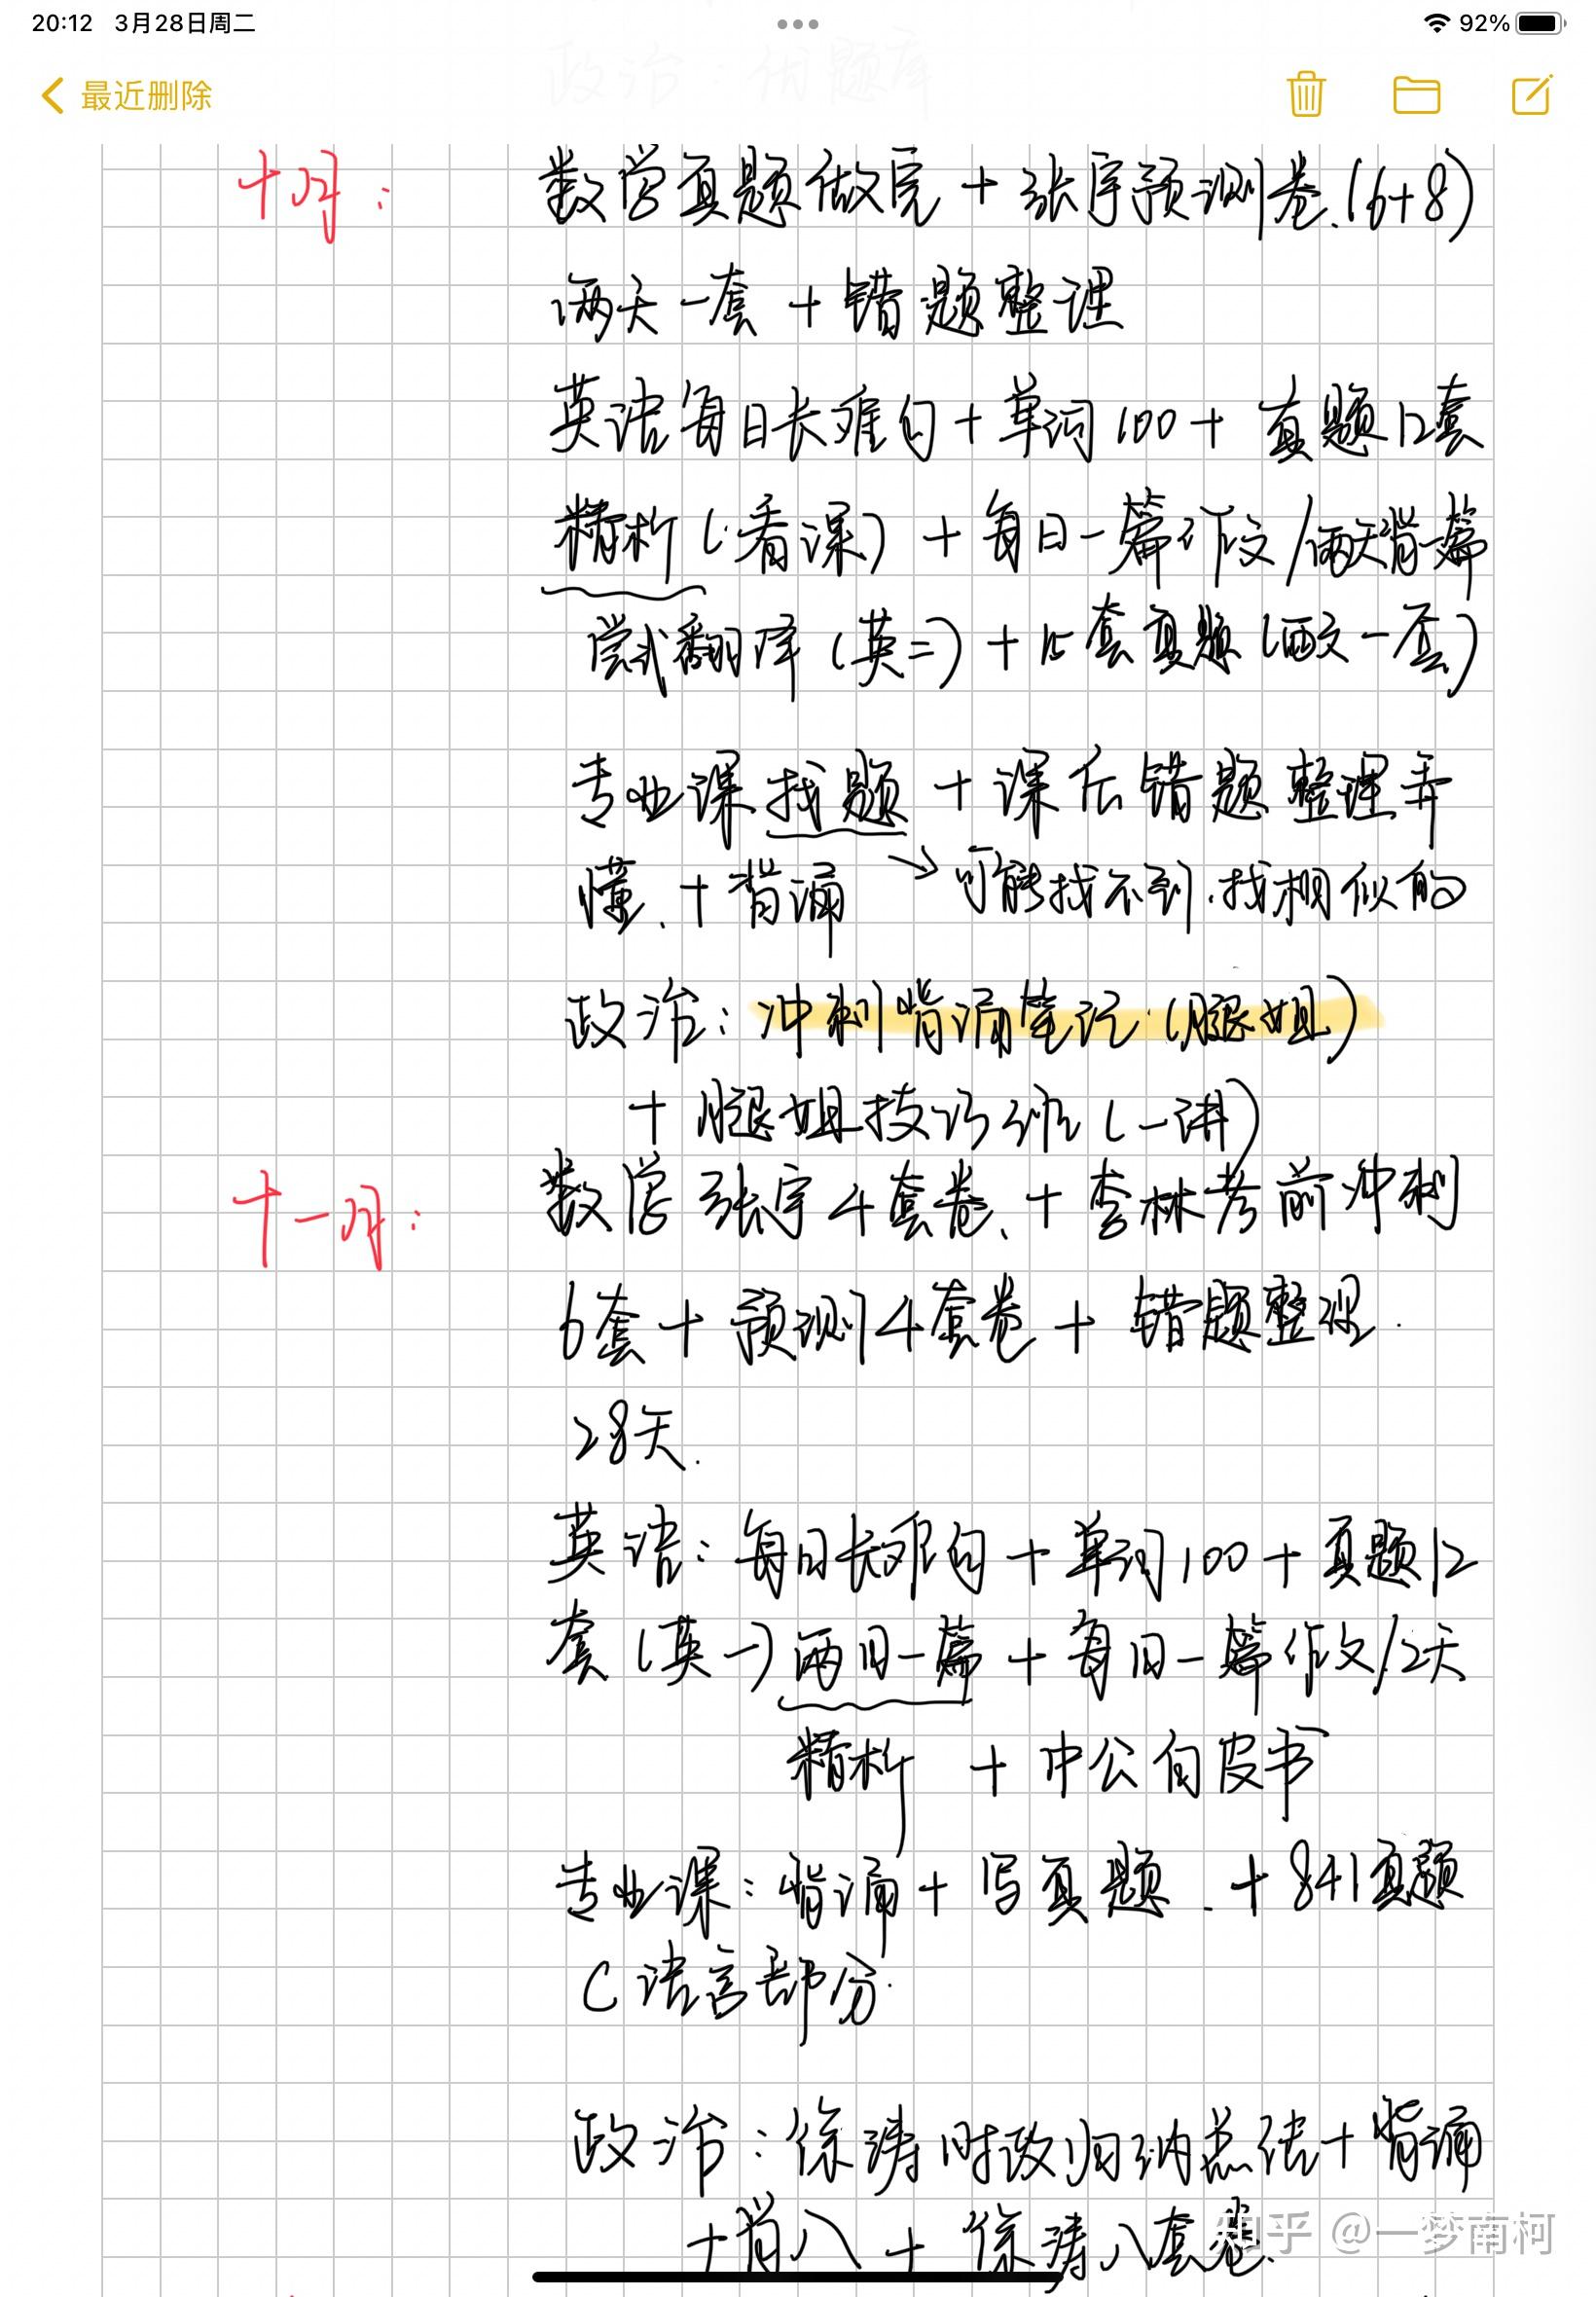 20:12 3月28日周二
92%
政治：
最近删除
十月：
数学真题做完＋张宇预测卷.(6+8)
两天一套＋错题整理
英语每日长难句＋单词100＋真题12套
精析(看课)＋每日一篇作文/两天背一篇
尝试翻译(英二)＋15套真题(两天一套)
专业课找题＋课后错题整理弄
懂.＋背诵→可能找不到.找相似的
政治：冲刺背诵笔记(腿姐)
＋腿姐技巧班(一讲)
十一月：
数学张宇4套卷.＋李林考前冲刺
6套＋预测4套卷＋错题整理.
28天.
英语：每日长难句＋单词100＋真题12
套(英一)两日一篇＋每日一篇作文/2天
精析＋中公白皮书
专业课：背诵＋写真题.＋841真题
C语言部分.
政治：徐涛时政归纳总结＋背诵
＋肖八＋徐涛八套卷.
知乎 @一梦南柯